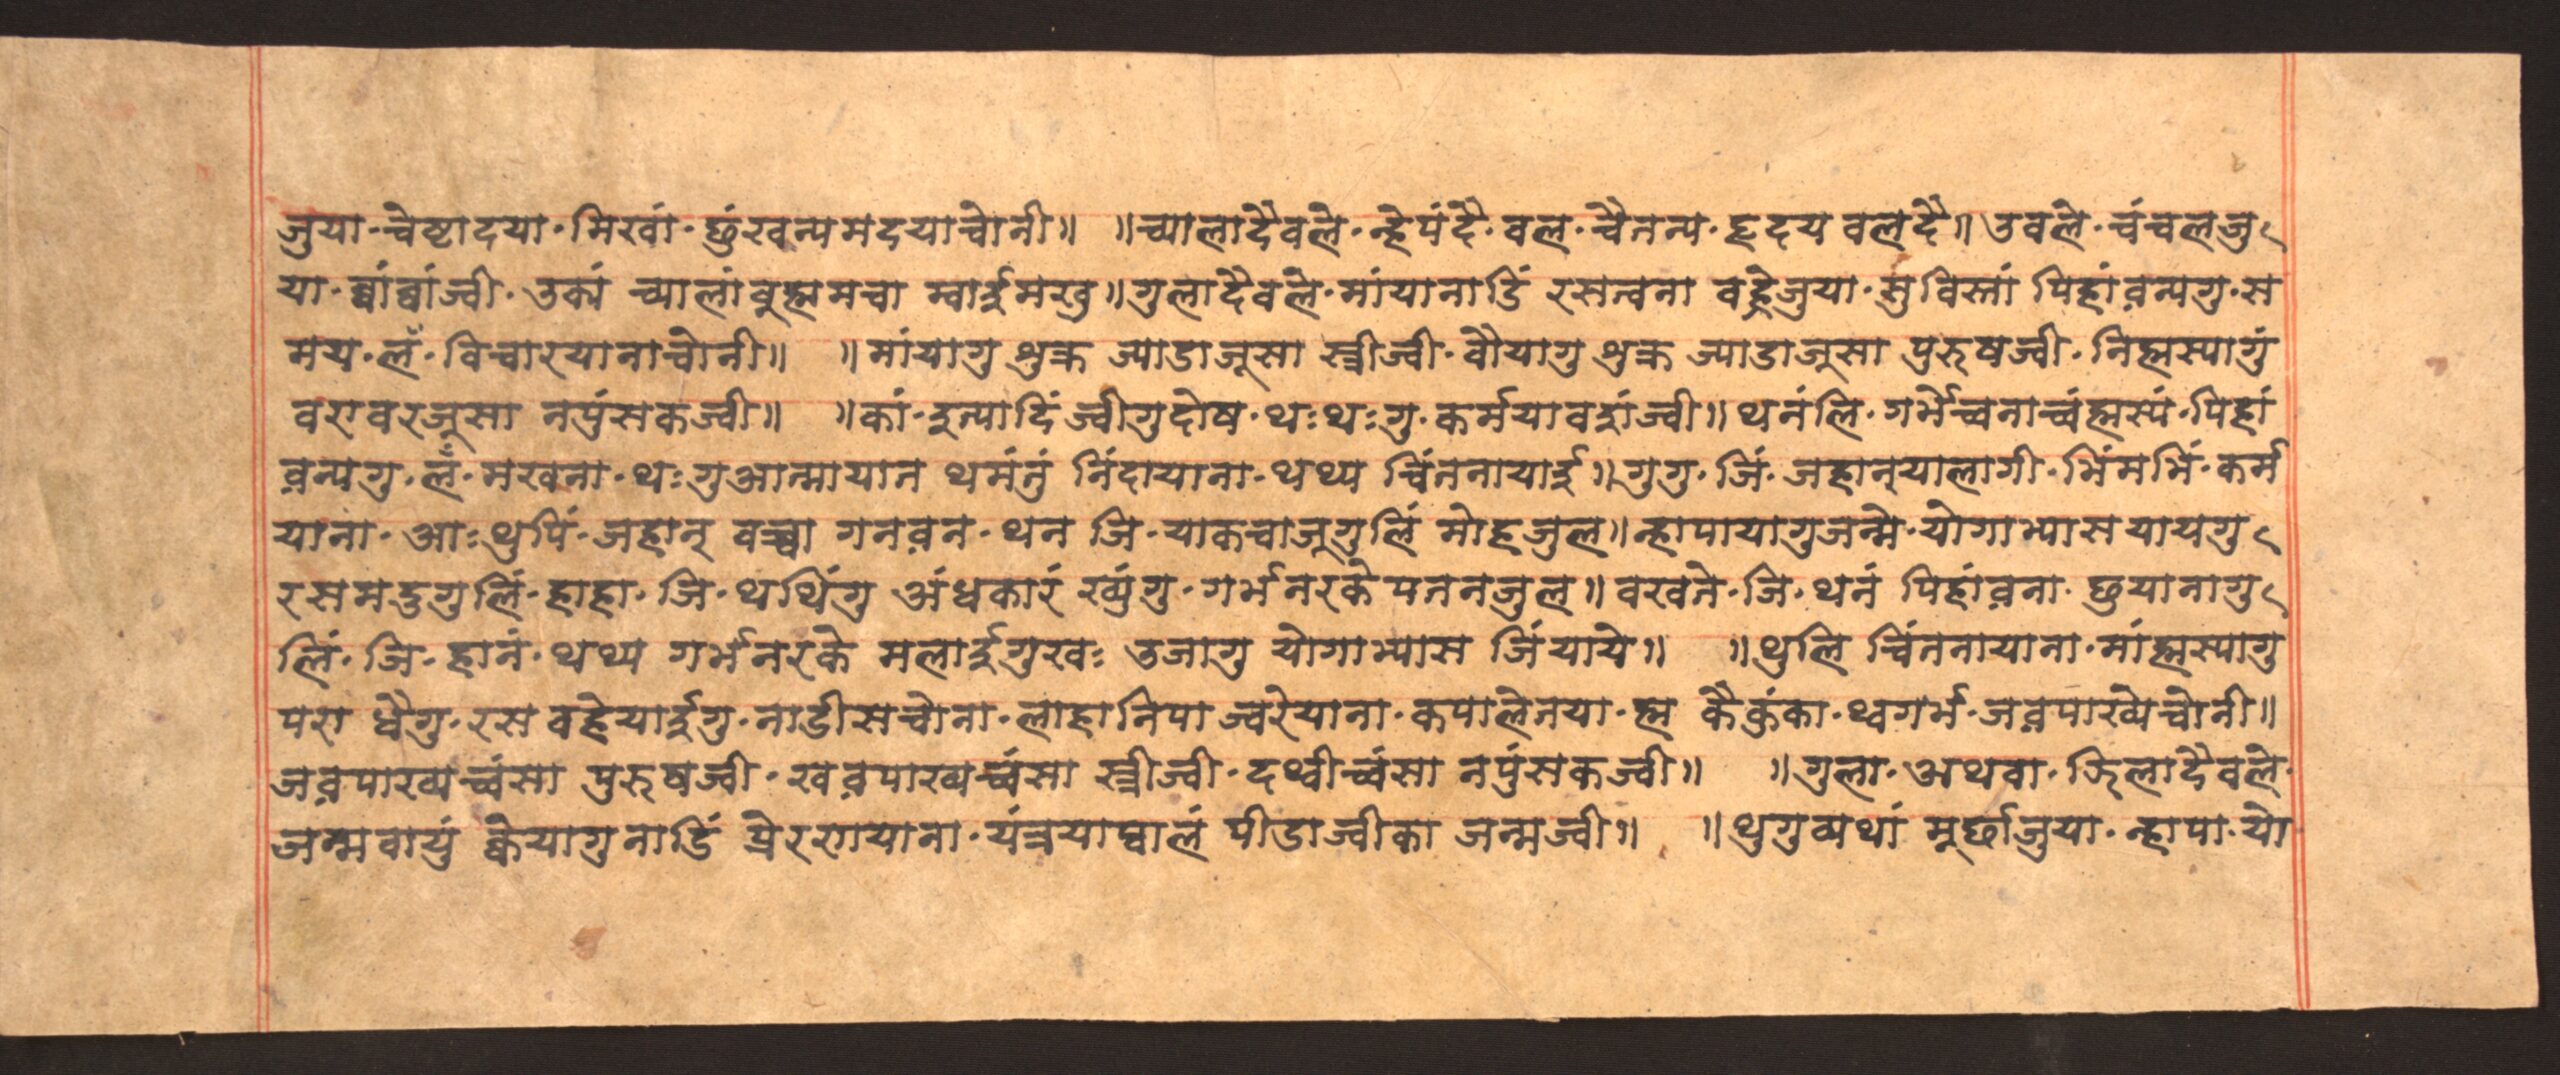 जुया·चेष्टादया·मिखां·छुंखन्यमदयाचोनी॥ ॥च्यालादैवले·न्हेपंदै·वल·चैतन्य·हृदय वलदै॥उवले·चंचलजु
या·व्वांव्वांज्वी·उक्यं च्यालांबुह्ममचा म्वाईमखु॥गुलादैवले·मांयानाडिं रसत्वना वह्रेजुया·सुंविस्तां पिहांव़न्यगु·स
मय·लँ·विचारयानाचोनी॥ ॥मांयागु शुक्र ज्याडाजूसा स्त्रीज्वी·वौयागु शुक्र ज्याडाजूसा पुरुषज्वी·निह्मस्यागुं
वरावरजूसा नपुंसकज्वी॥ ॥कां·दुत्यादिंज्वीगुदोष·थःथःगु·कर्मयावशंज्वी॥थनंलि·गर्भेच्वनाच्वंह्मस्यं·पिहां
व़न्यगु·लँ·मखना·थःगुआत्मायात थमंतुं निंदायाना·थथ्य चिंतनायाई॥गुगु·जिं·जहान्‌यालागी·भिंमभिं·कर्म
याना·आःथुपिं·जहान् वच्चा गनव़न·थन जि·याकचाजूगुलिं मोहजुल॥न्हापायागुजन्मे·योगाभ्यासयायगु
रसमदुगुलिं·हाहा·जि·थथिंगु अंधकारं ख्युंगु·गर्भनरके पतनजुल॥वखते·जि·थनं पिहांव़ना छुयानागु
लिं·जि·हानं·थथ्य गर्भनरके मलाईगुखः उजागु योगाभ्यास जिंयाये॥ ॥थुलि चिंतनायाना·मांह्मस्यागु
परा ध्वैगु·रस वह्रेयाईगु·नाडीसचोना·लाहानिपा ज्वरेयाना·कपालेतया·ह्म कैकुंका·थ्वगर्भ·जव़पाख्येचोनी॥
जव़पाख्यच्वंसा पुरुषज्वी·खव़पाख्यच्वंसा स्त्रीज्वी·दथ्वीच्वंसा नपुंसकज्वी॥ ॥गुला·अथवा·झिलादैवले·
जन्मवायुं क्वेयागुनाडिं प्रेरणायाना·यंत्रयाप्वालं पीडाज्वीका जन्मज्वी॥ ॥थुगुव्यथां मूर्छाजुया·न्हापा·यो